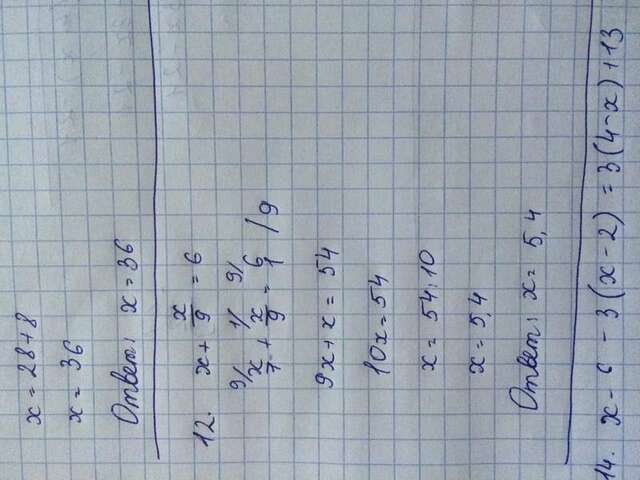 x = 28+8
x = 36
Ответ: x = 36
12. x + x/9 = 6
9/ x/1 + 1/ x/9 = 9/ 6/1 / 9
9x + x = 54
10x = 54
x = 54:10
x = 5,4
Ответ: x = 5,4
14. x - 6 - 3(x-2) = 3(4-x)+13